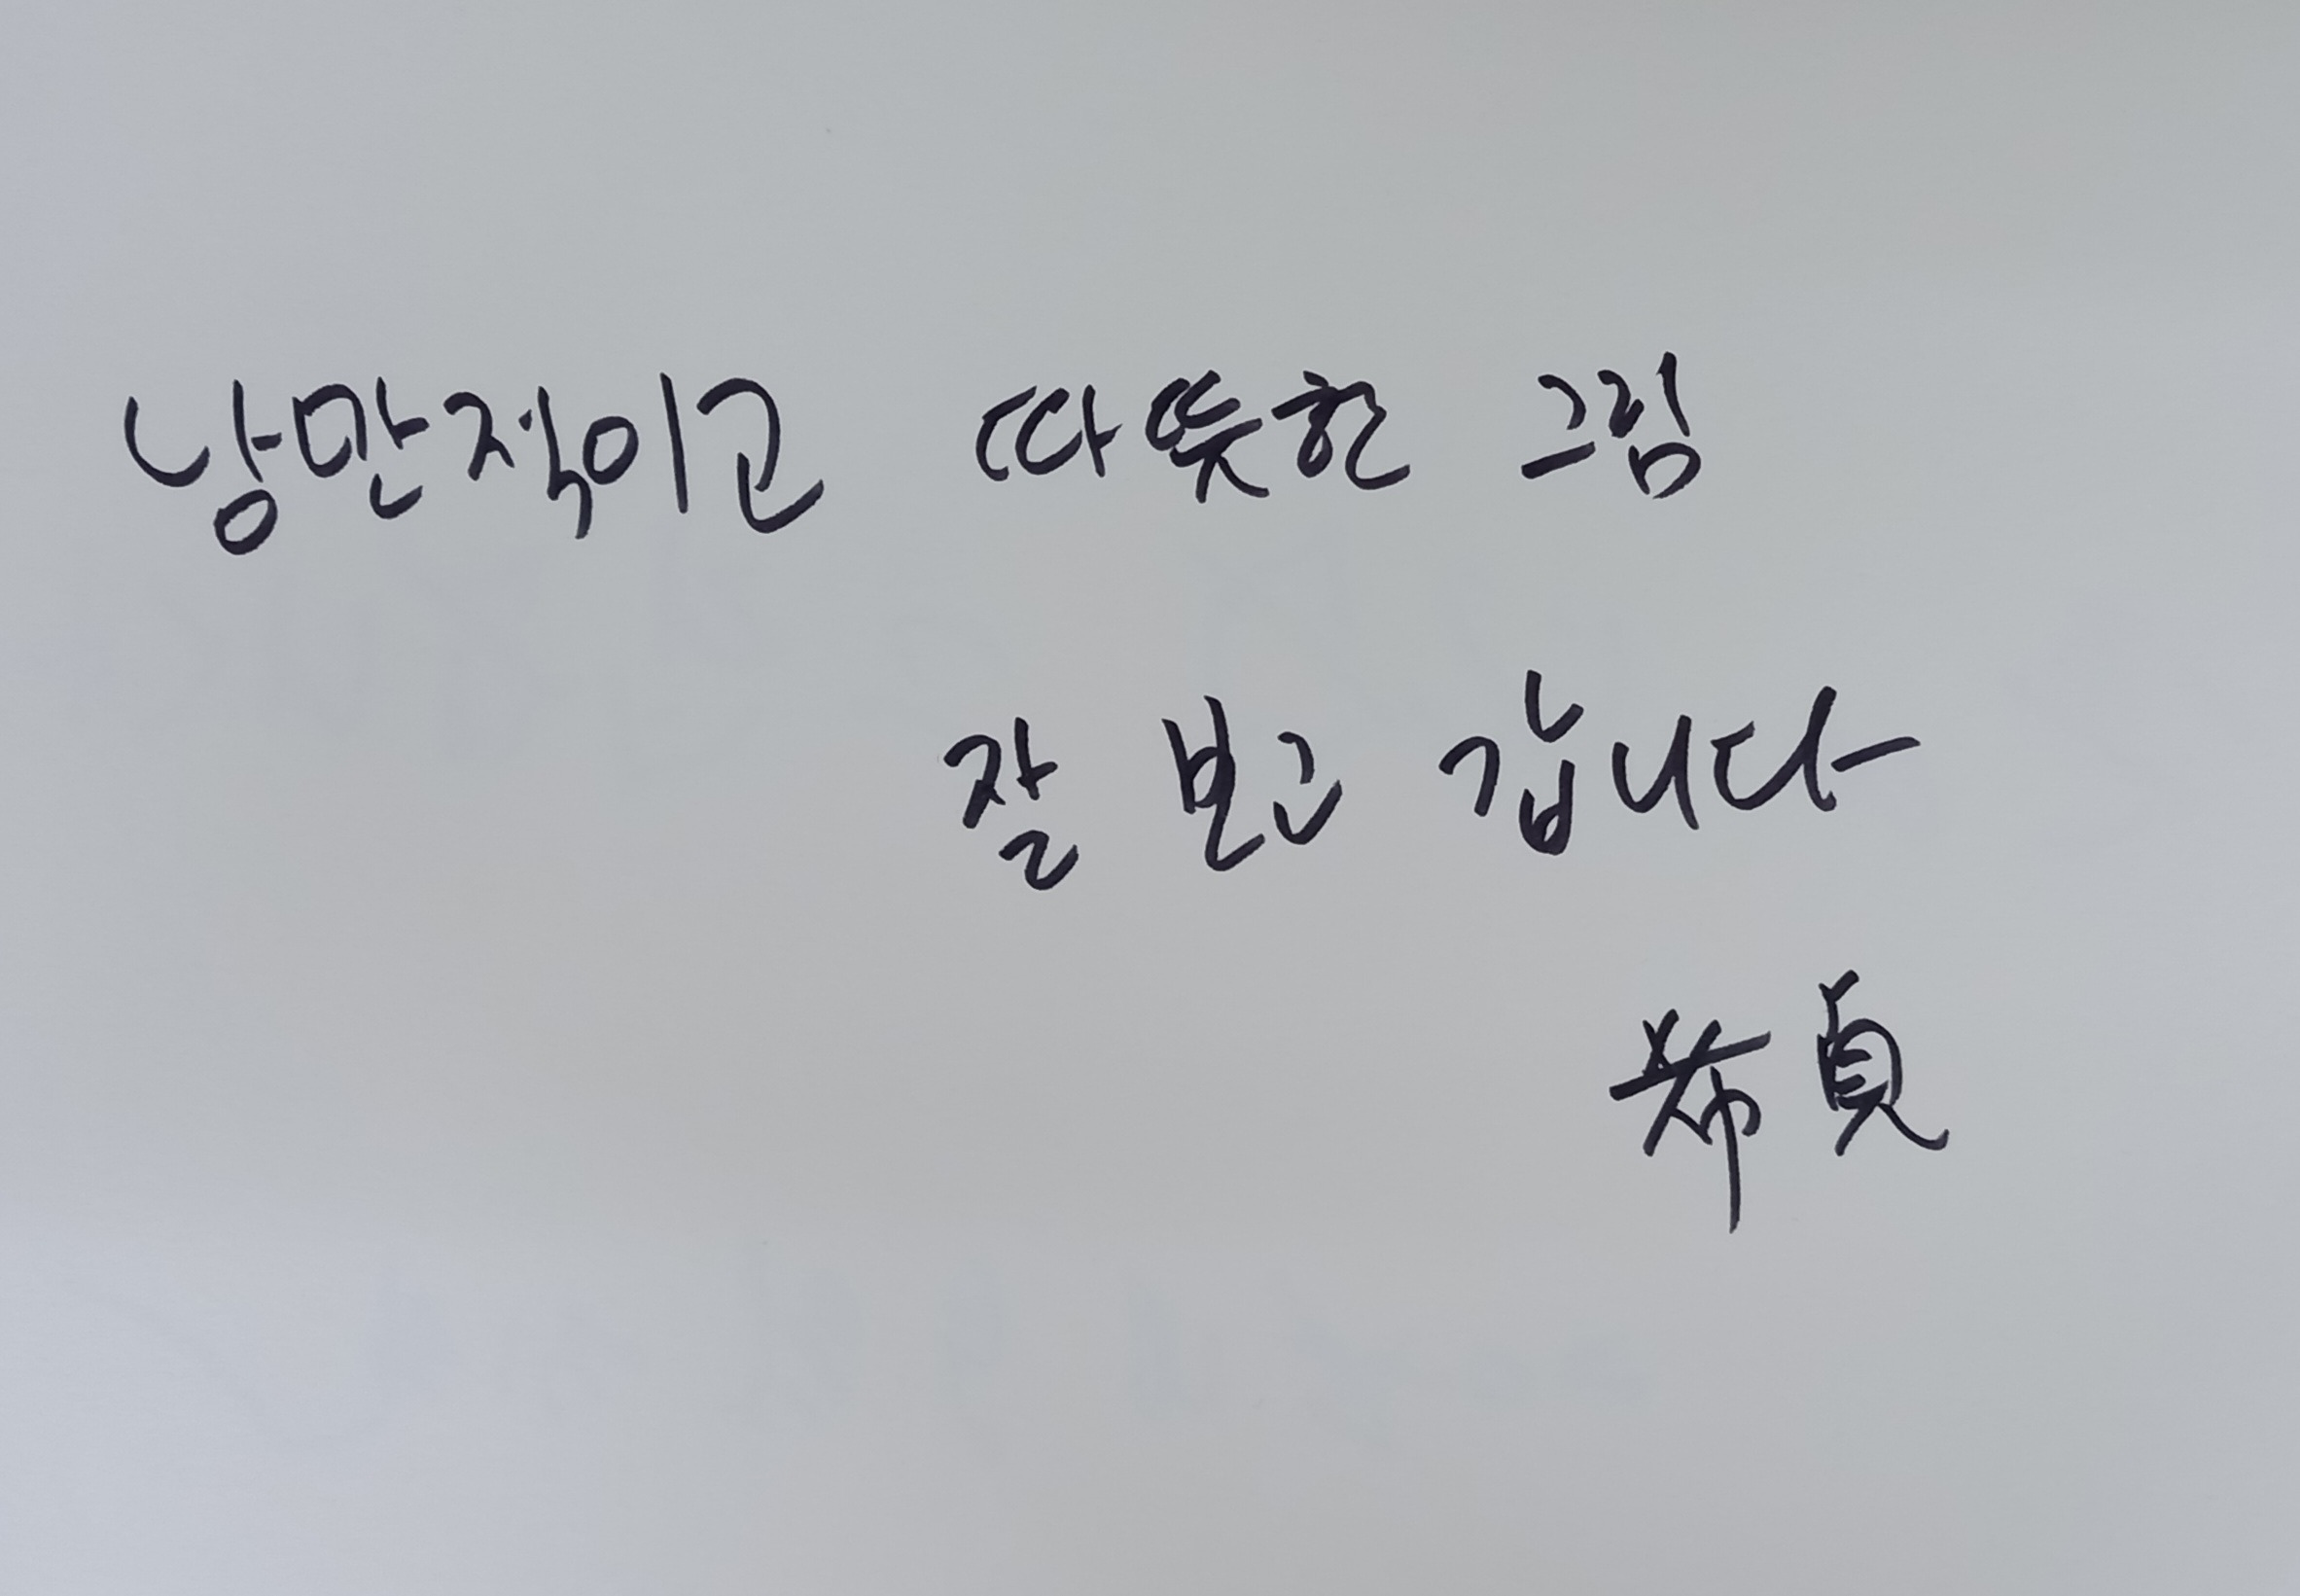 낭만적이고 따뜻한 그림
잘 보고 갑니다
希貞